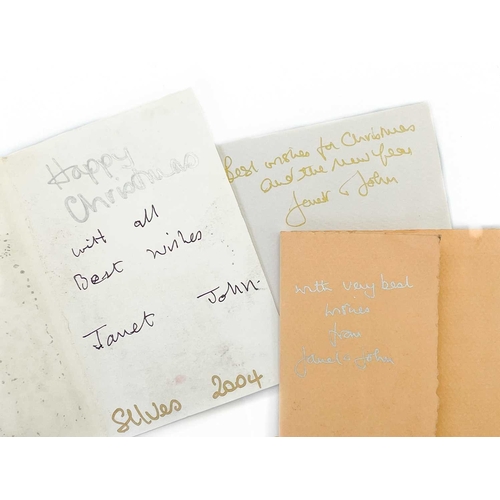 Happy
Christmas
with all
Best wishes
Janet John.
2004
Best wishes for Christmas
and the New Year
Janet & John
with very best
wishes
from
Janet & John